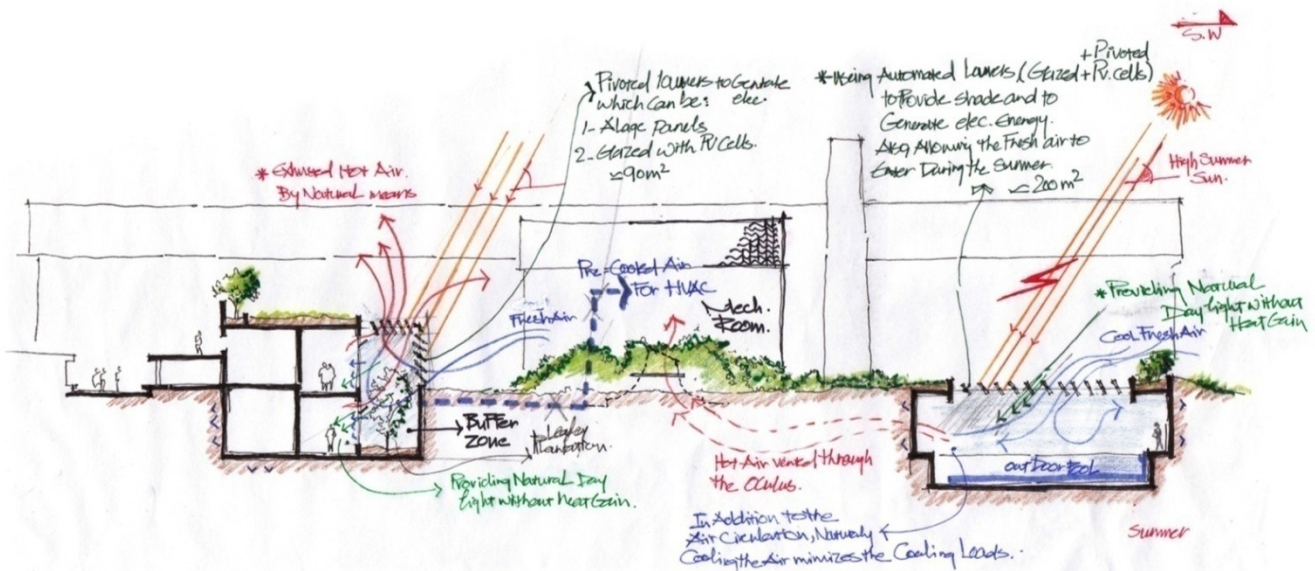 S.W
Pivoted louvers to Genrate
which can be: elec.
1- Alage Panels
2- Glazed with PV Cells.
≃90m²
*Using Automated Louvers (Glazed+PV.cells)
+Pivoted
to Provide shade and to
Generate elec. Energy.
Also Allowing the Fresh air to
Enter During the Summer.
≃200m²
High Summer
Sun.
* Exhused Hot Air.
By Natural means
Pre-Cooled Air
For HVAC
Mech.
Room.
Fresh Air
*Providing Natural
Day light without
Heat Gain
Cool Fresh Air
Buffer
Zone
Plantation.
Providing Natural Day
light without Heat Gain.
Hot Air vented through
the Oculus.
outDoor Pool
In Addition to the
Air Circulation, Naturaly
Cooling the Air mimizes the Cooling Loads.
Summer